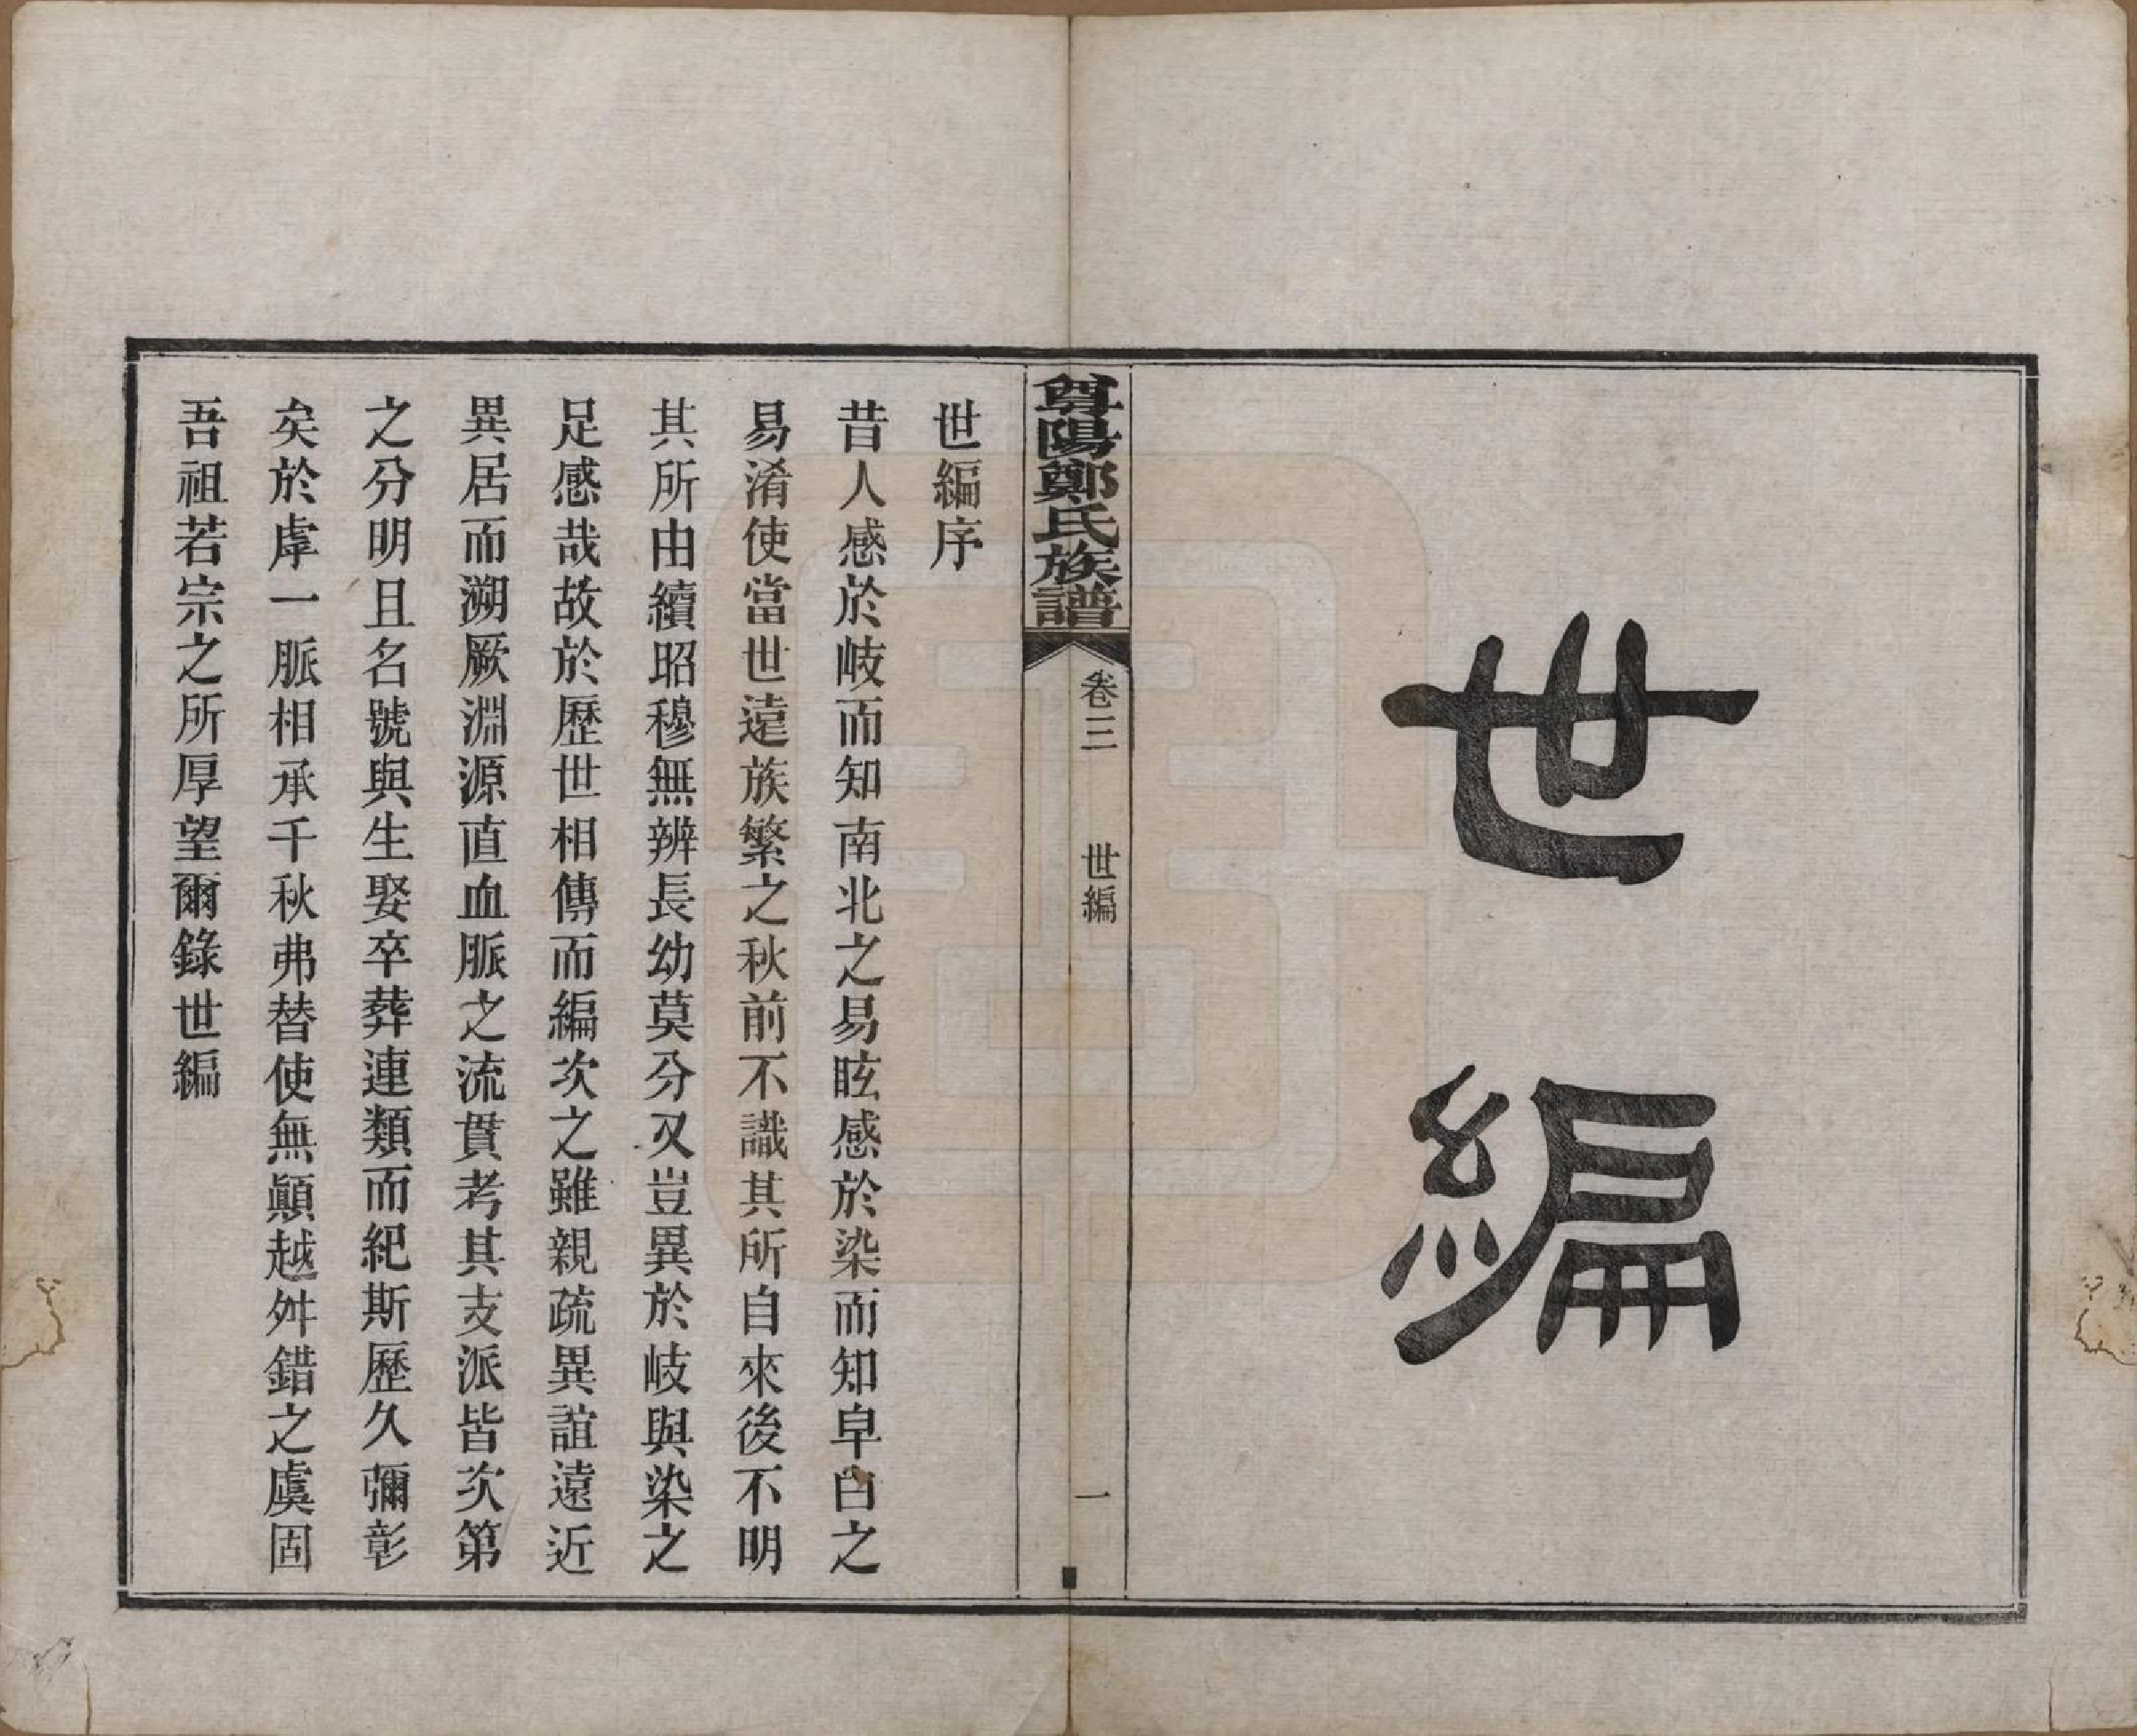 世編
尊陽鄭氏族譜
卷三
世編
一
世編序
昔人感於岐而知南北之易眩感於染而知皁白之
易淆使當世遠族繁之秋前不識其所自來後不明
其所由續昭穆無辨長幼莫分又豈異於岐與染之
足感哉故於歷世相傳而編次之雖親疏異誼遠近
異居而溯厥淵源直血脈之流貫考其支派皆次第
之分明且名號與生娶卒葬連類而紀斯歷久彌彰
矣於虖一脈相承千秋弗替使無顚越舛錯之虞固
吾祖若宗之所厚望爾錄世編